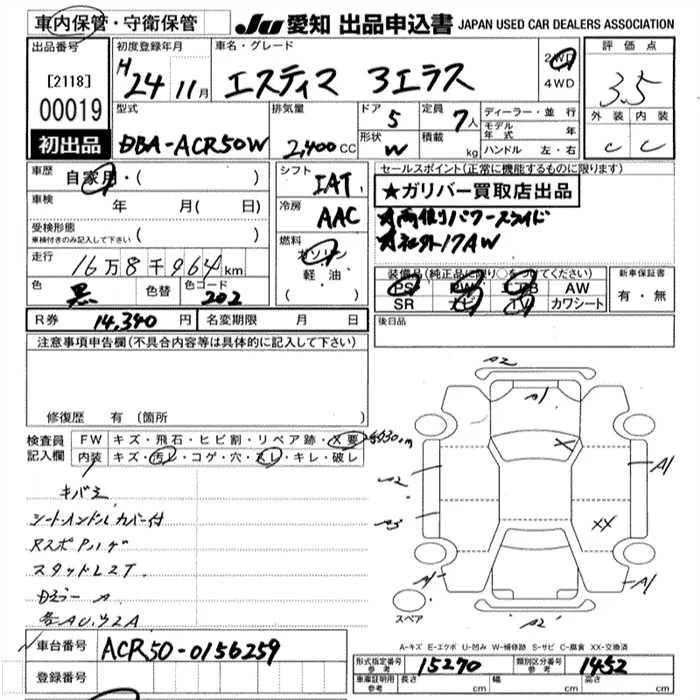 車内保管・守衛保管
JU 愛知 出品申込書 JAPAN USED CAR DEALERS ASSOCIATION
出品番号
[2118]
00019
初出品
初度登録年月
H 24 11月
車名・グレード
エスティマ 3エラス
2WD
4WD
評価点
3.5
外装 内装
C C
型式
DBA-ACR50W
排気量
2,400 CC
ドア 5
形状 W
定員 7人
積載 kg
ディーラー・並行
モデル年式 年
ハンドル 左・右
車歴
自家用・( )
車検 年 月(日)
受検形態
車検付きのみ記入して下さい ( )
走行
16万8千964km
色 黒 色替 色コード 202
シフト
IAT
冷房
AAC
燃料
ガソリン
軽・油
( )
セールスポイント(正常に機能するものに限ります)
★ガリバー買取店出品
★両側パワースライド
★社外17AW
装備品(純正品に限り○をつけてください)
PS PW エアB AW
SR ナビ TV カワシート
新車保証書
有・無
R券 14,340円 名変期限 月 日
後日品
注意事項申告欄(不具合内容等は具体的に記入して下さい)
修復歴 有(箇所 )
検査員記入欄
FW キズ・飛石・ヒビ割・リペア跡・X要
内装 キズ・汚レ・コゲ・穴・スレ・キレ・破レ
シートハンドルカバー付
A2
A1
X
A2
A1
A3
XX
A1
A2
スペア
A-キズ E-エクボ U-凹み W-補修跡 S-サビ C-腐食 XX-交換済
車台番号 ACR50-0156259
登録番号
形式指定番号 参考 15270 類別区分番号 参考 1452
車庫証明用 参考 長さ cm 幅 cm 高さ cm